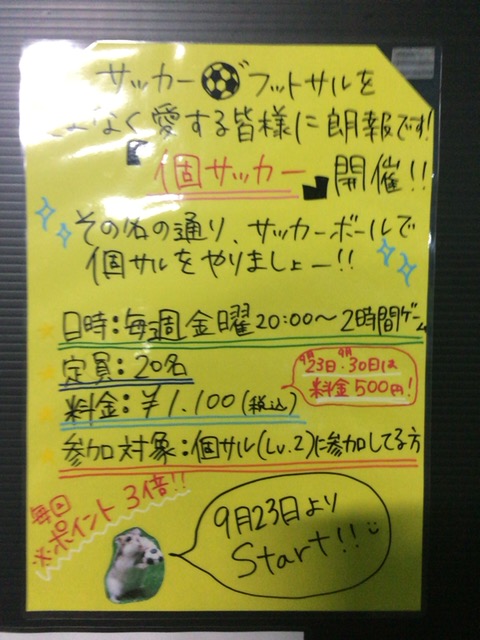 サッカー フットサルを
こよなく愛する皆様に朗報です!
『個サッカー』開催!!
その名の通り、サッカーボールで
個サルをやりましょー!!
日時:毎週金曜20:00〜2時間ゲーム
定員:20名
料金:¥1.100(税込)
9月23日・9月30日は
料金500円!
参加対象:個サル(Lv.2)に参加してる方
毎回
※ポイント3倍!!
9月23日より
Start!!